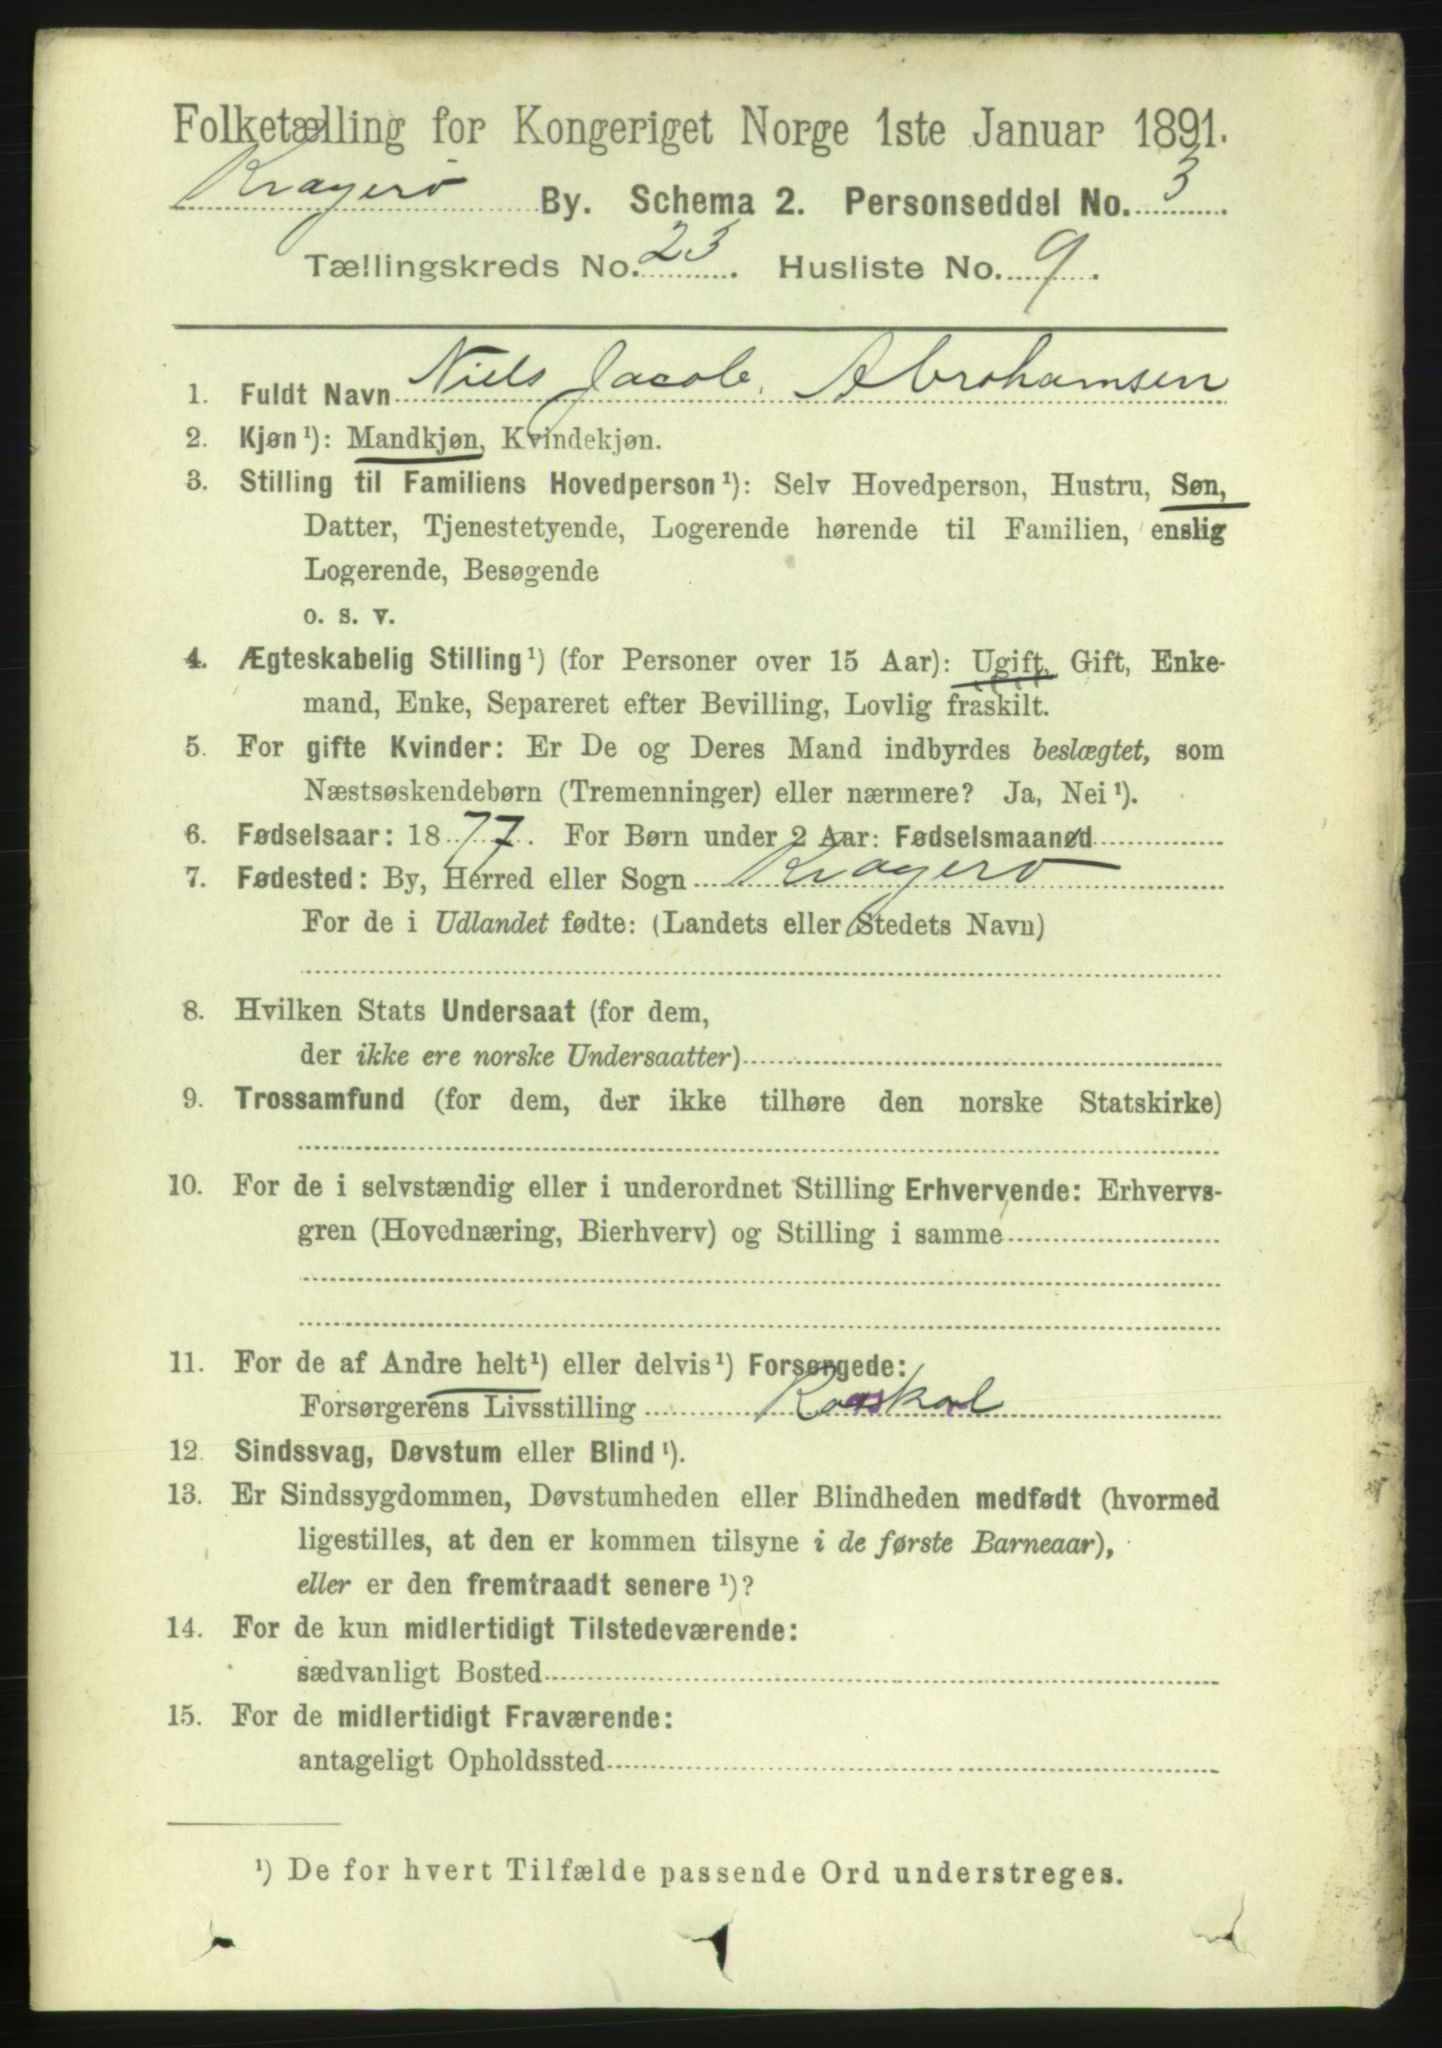 Folketælling for Kongeriget Norge 1ste Januar 1891.
Kragerö By. Schema 2. Personseddel No. 3
Tællingskreds No. 23. Husliste No. 9.
1. Fuldt Navn Niels Jacob. Abrohamsen
2. Kjøn¹): Mandkjøn, Kvindekjøn.
3. Stilling til Familiens Hovedperson¹): Selv Hovedperson, Hustru, Søn,
Datter, Tjenestetyende, Logerende hørende til Familien, enslig
Logerende, Besøgende
o. s. v.
4. Ægteskabelig Stilling¹) (for Personer over 15 Aar): Ugift, Gift, Enke-
mand, Enke, Separeret efter Bevilling, Lovlig fraskilt.
5. For gifte Kvinder: Er De og Deres Mand indbyrdes beslægtet, som
Næstsøskendebørn (Tremenninger) eller nærmere? Ja, Nei¹).
6. Fødselsaar: 1877. For Børn under 2 Aar: Fødselsmaaned
7. Fødested: By, Herred eller Sogn Kragerö
For de i Udlandet fødte: (Landets eller Stedets Navn)
8. Hvilken Stats Undersaat (for dem,
der ikke ere norske Undersaatter)
9. Trossamfund (for dem, der ikke tilhøre den norske Statskirke)
10. For de i selvstændig eller i underordnet Stilling Erhvervende: Erhvervs-
gren (Hovednæring, Bierhverv) og Stilling i samme
11. For de af Andre helt¹) eller delvis¹) Forsørgede:
Forsørgerens Livsstilling
12. Sindssvag, Døvstum eller Blind¹).
13. Er Sindssygdommen, Døvstumheden eller Blindheden medfødt (hvormed
ligestilles, at den er kommen tilsyne i de første Barneaar),
eller er den fremtraadt senere¹)?
14. For de kun midlertidigt Tilstedeværende:
sædvanligt Bosted
15. For de midlertidigt Fraværende:
antageligt Opholdssted
¹) De for hvert Tilfælde passende Ord understreges.